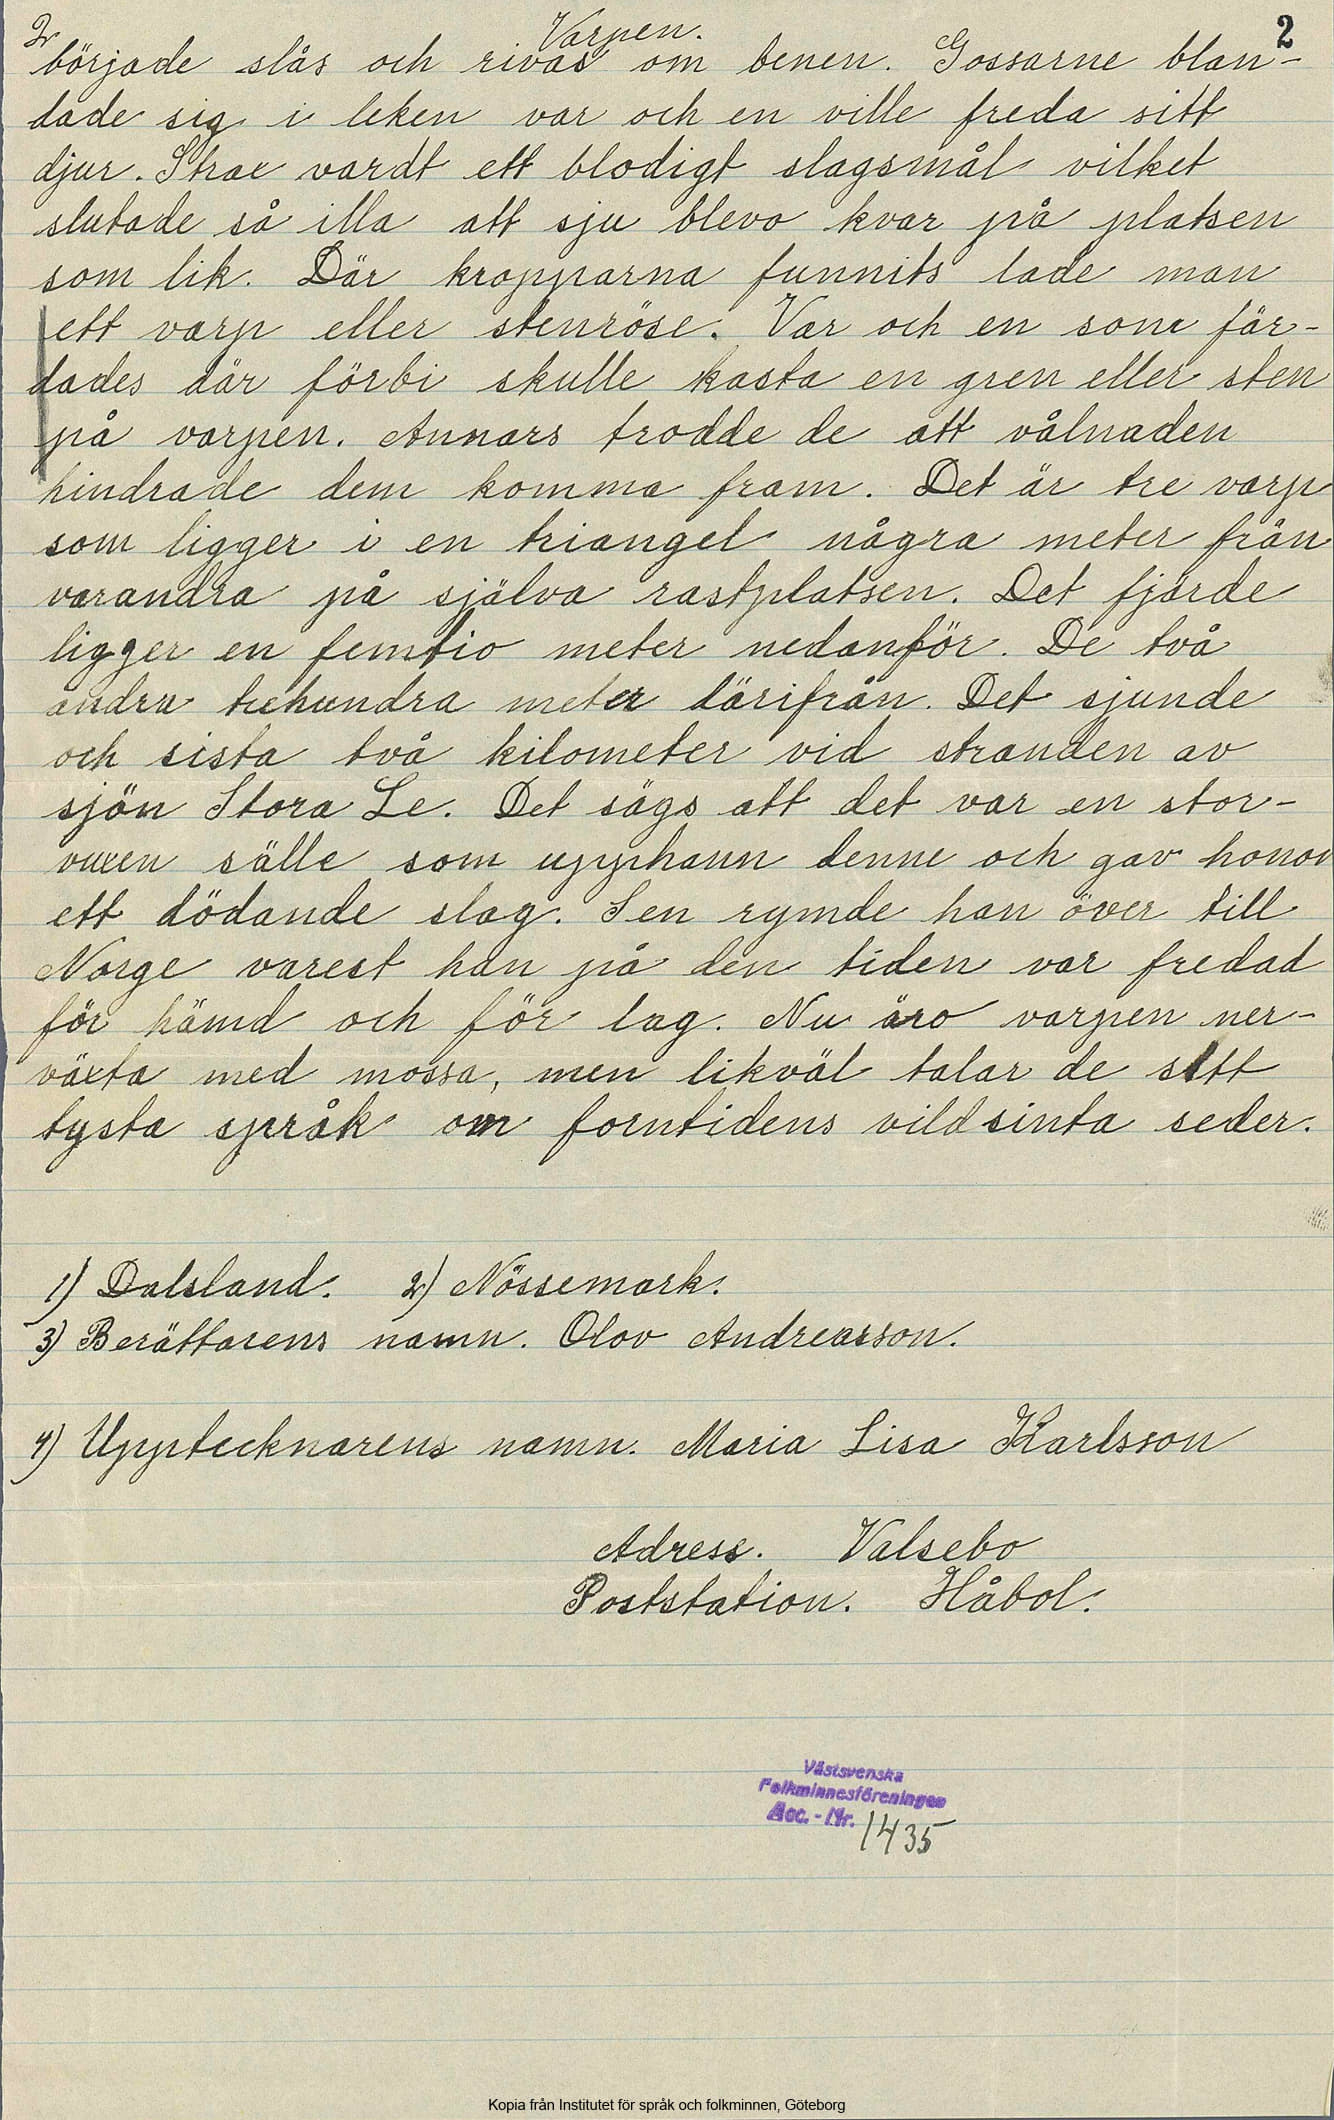 2 Varpen. 2
började slås och rivas om benen. Gossarne blan-
dade sig i leken var och en ville freda sitt
djur. Strax vardt ett blodigt slagsmål vilket
slutade så illa att sju blevo kvar på platsen
som lik. Där kropparna funnits lade man
ett varp eller stenröse. Var och en som fär-
dades där förbi skulle kasta en gren eller sten
på varpen. Annars trodde de att vålnaden
hindrade dem komma fram. Det är tre varp
som ligger i en triangel några meter från
varandra på själva rastplatsen. Det fjärde
ligger en femtio meter nedanför. De två
andra trehundra meter därifrån. Det sjunde
och sista två kilometer vid stranden av
sjön Stora Le. Det sägs att det var en stor-
vuxen sälle som upphann denne och gav honom
ett dödande slag. Sen rymde han över till
Norge varest han på den tiden var fredad
för hämd och för lag. Nu äro varpen ner-
växta med mossa, men likväl talar de sitt
tysta språk om forntidens vildsinta seder.
1) Dalsland. 2) Nössemark.
3) Berättarens namn. Olov Andreasson.
4) Upptecknarens namn. Maria Lisa Karlsson
Adress. Valsebo
Poststation. Håbol.
Västsvenska
Folkminnesföreningen
Acc.-Nr. 1435
Kopia från Institutet för språk och folkminnen, Göteborg